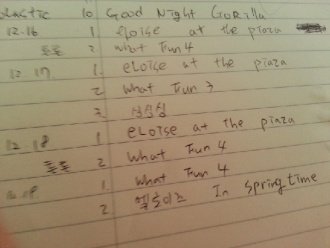 10 Good Night Gorilla
12.16 1 eloise at the piaza
2 what Fun 4
12.17 1. eloise at the piaza
2 what Fun 3
3.
12.18 1 eloise at the piaza
2 What Fun 4
1. What Fun 4
2 엘로이즈 In springtime